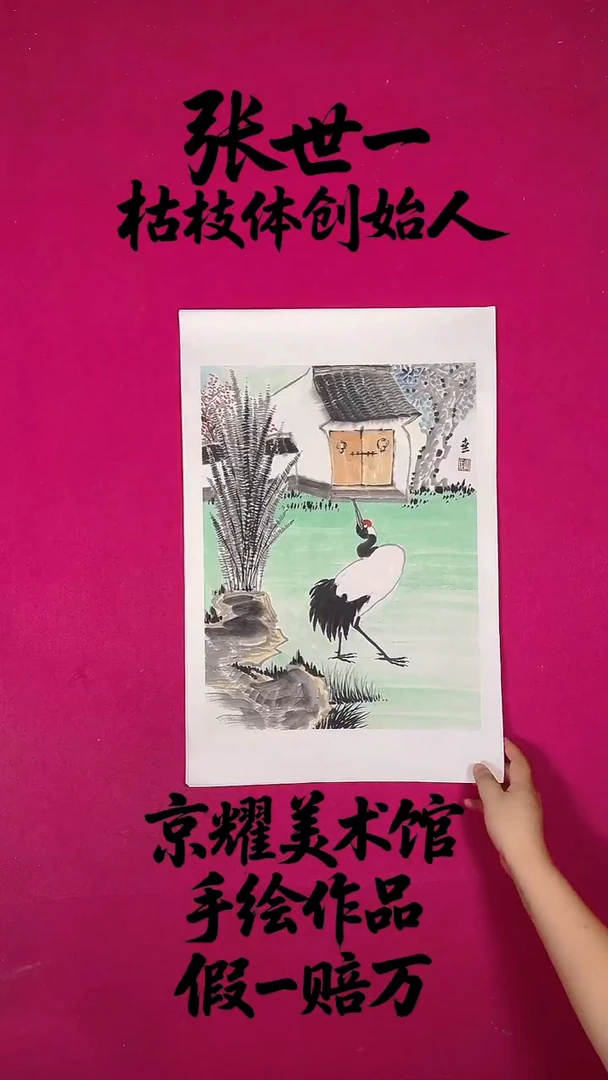 张世一
枯枝体创始人
京耀美术馆
手绘作品
假一赔万